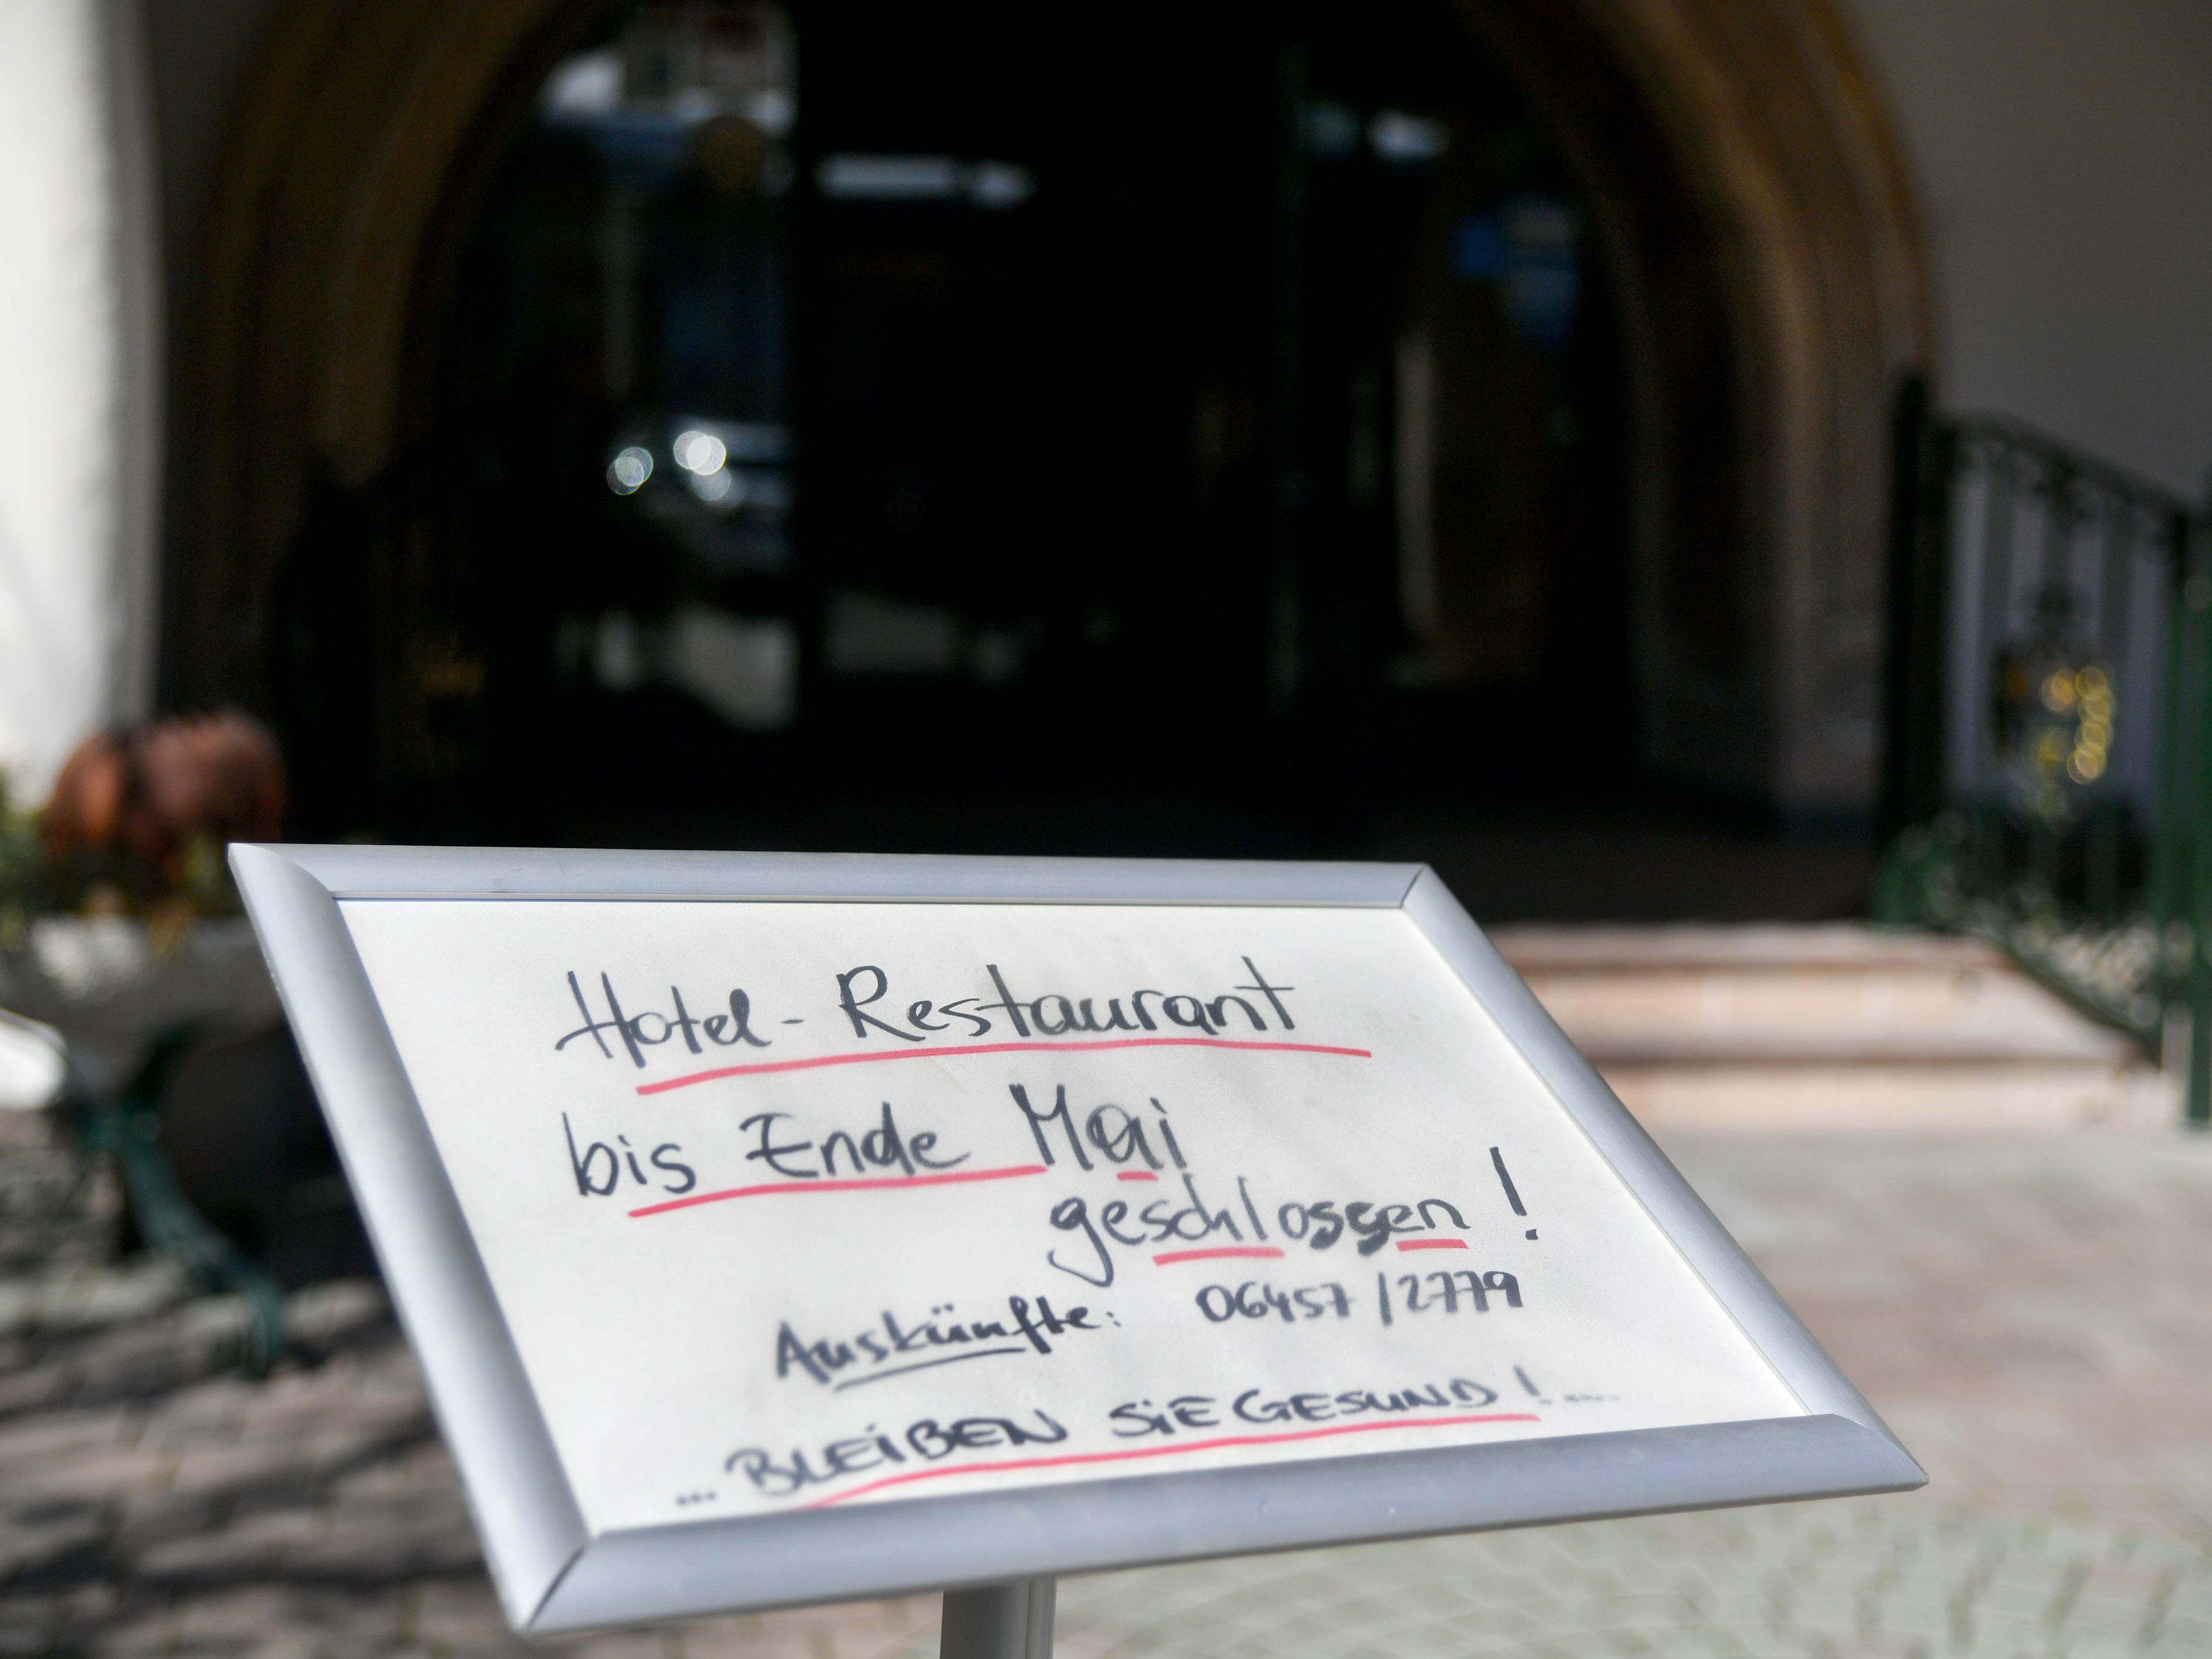 Hotel - Restaurant
bis Ende Mai
geschlossen !
Auskünfte: 06457 / 2779
... BLEIBEN SIE GESUND ! ....